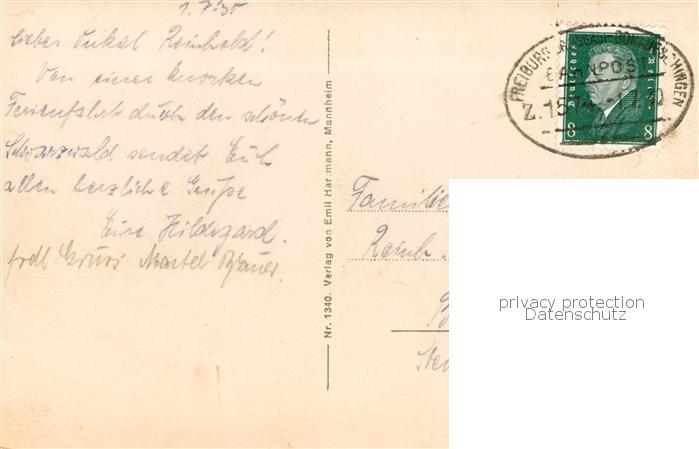 1.7.30
Lieber Onkel Reinhold!
Von einer
Ferienfahrt durch den schönen
Schwarzwald sendet Euch
allen herzliche Grüße
Eure Hildegard.
frdl. Gruss Martel
Nr. 1340. Verlag von Emil Hartmann, Mannheim
FREIBURG
BAHNPOST
Z.
Deutsches
8 8
Familie
Reinh.
privacy protection
Datenschutz